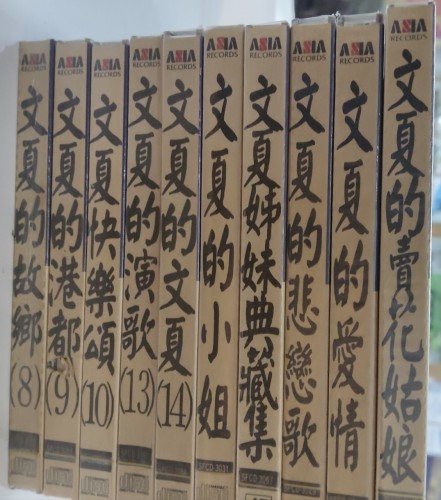 ASIA
RECORDS
文夏的故鄉
(8)
ASIA
RECORDS
文夏的港都
(9)
ASIA
RECORDS
文夏快樂頌
(10)
ASIA
RECORDS
文夏的演歌
(13)
ASIA
RECORDS
文夏的文夏
(14)
ASIA
RECORDS
文夏的小姐
SFCD 3031
ASIA
RECORDS
文夏姊妹典藏集
ASIA
RECORDS
文夏的悲戀歌
ASIA
RECORDS
文夏的愛情
ASIA
RECORDS
文夏的賣花姑娘